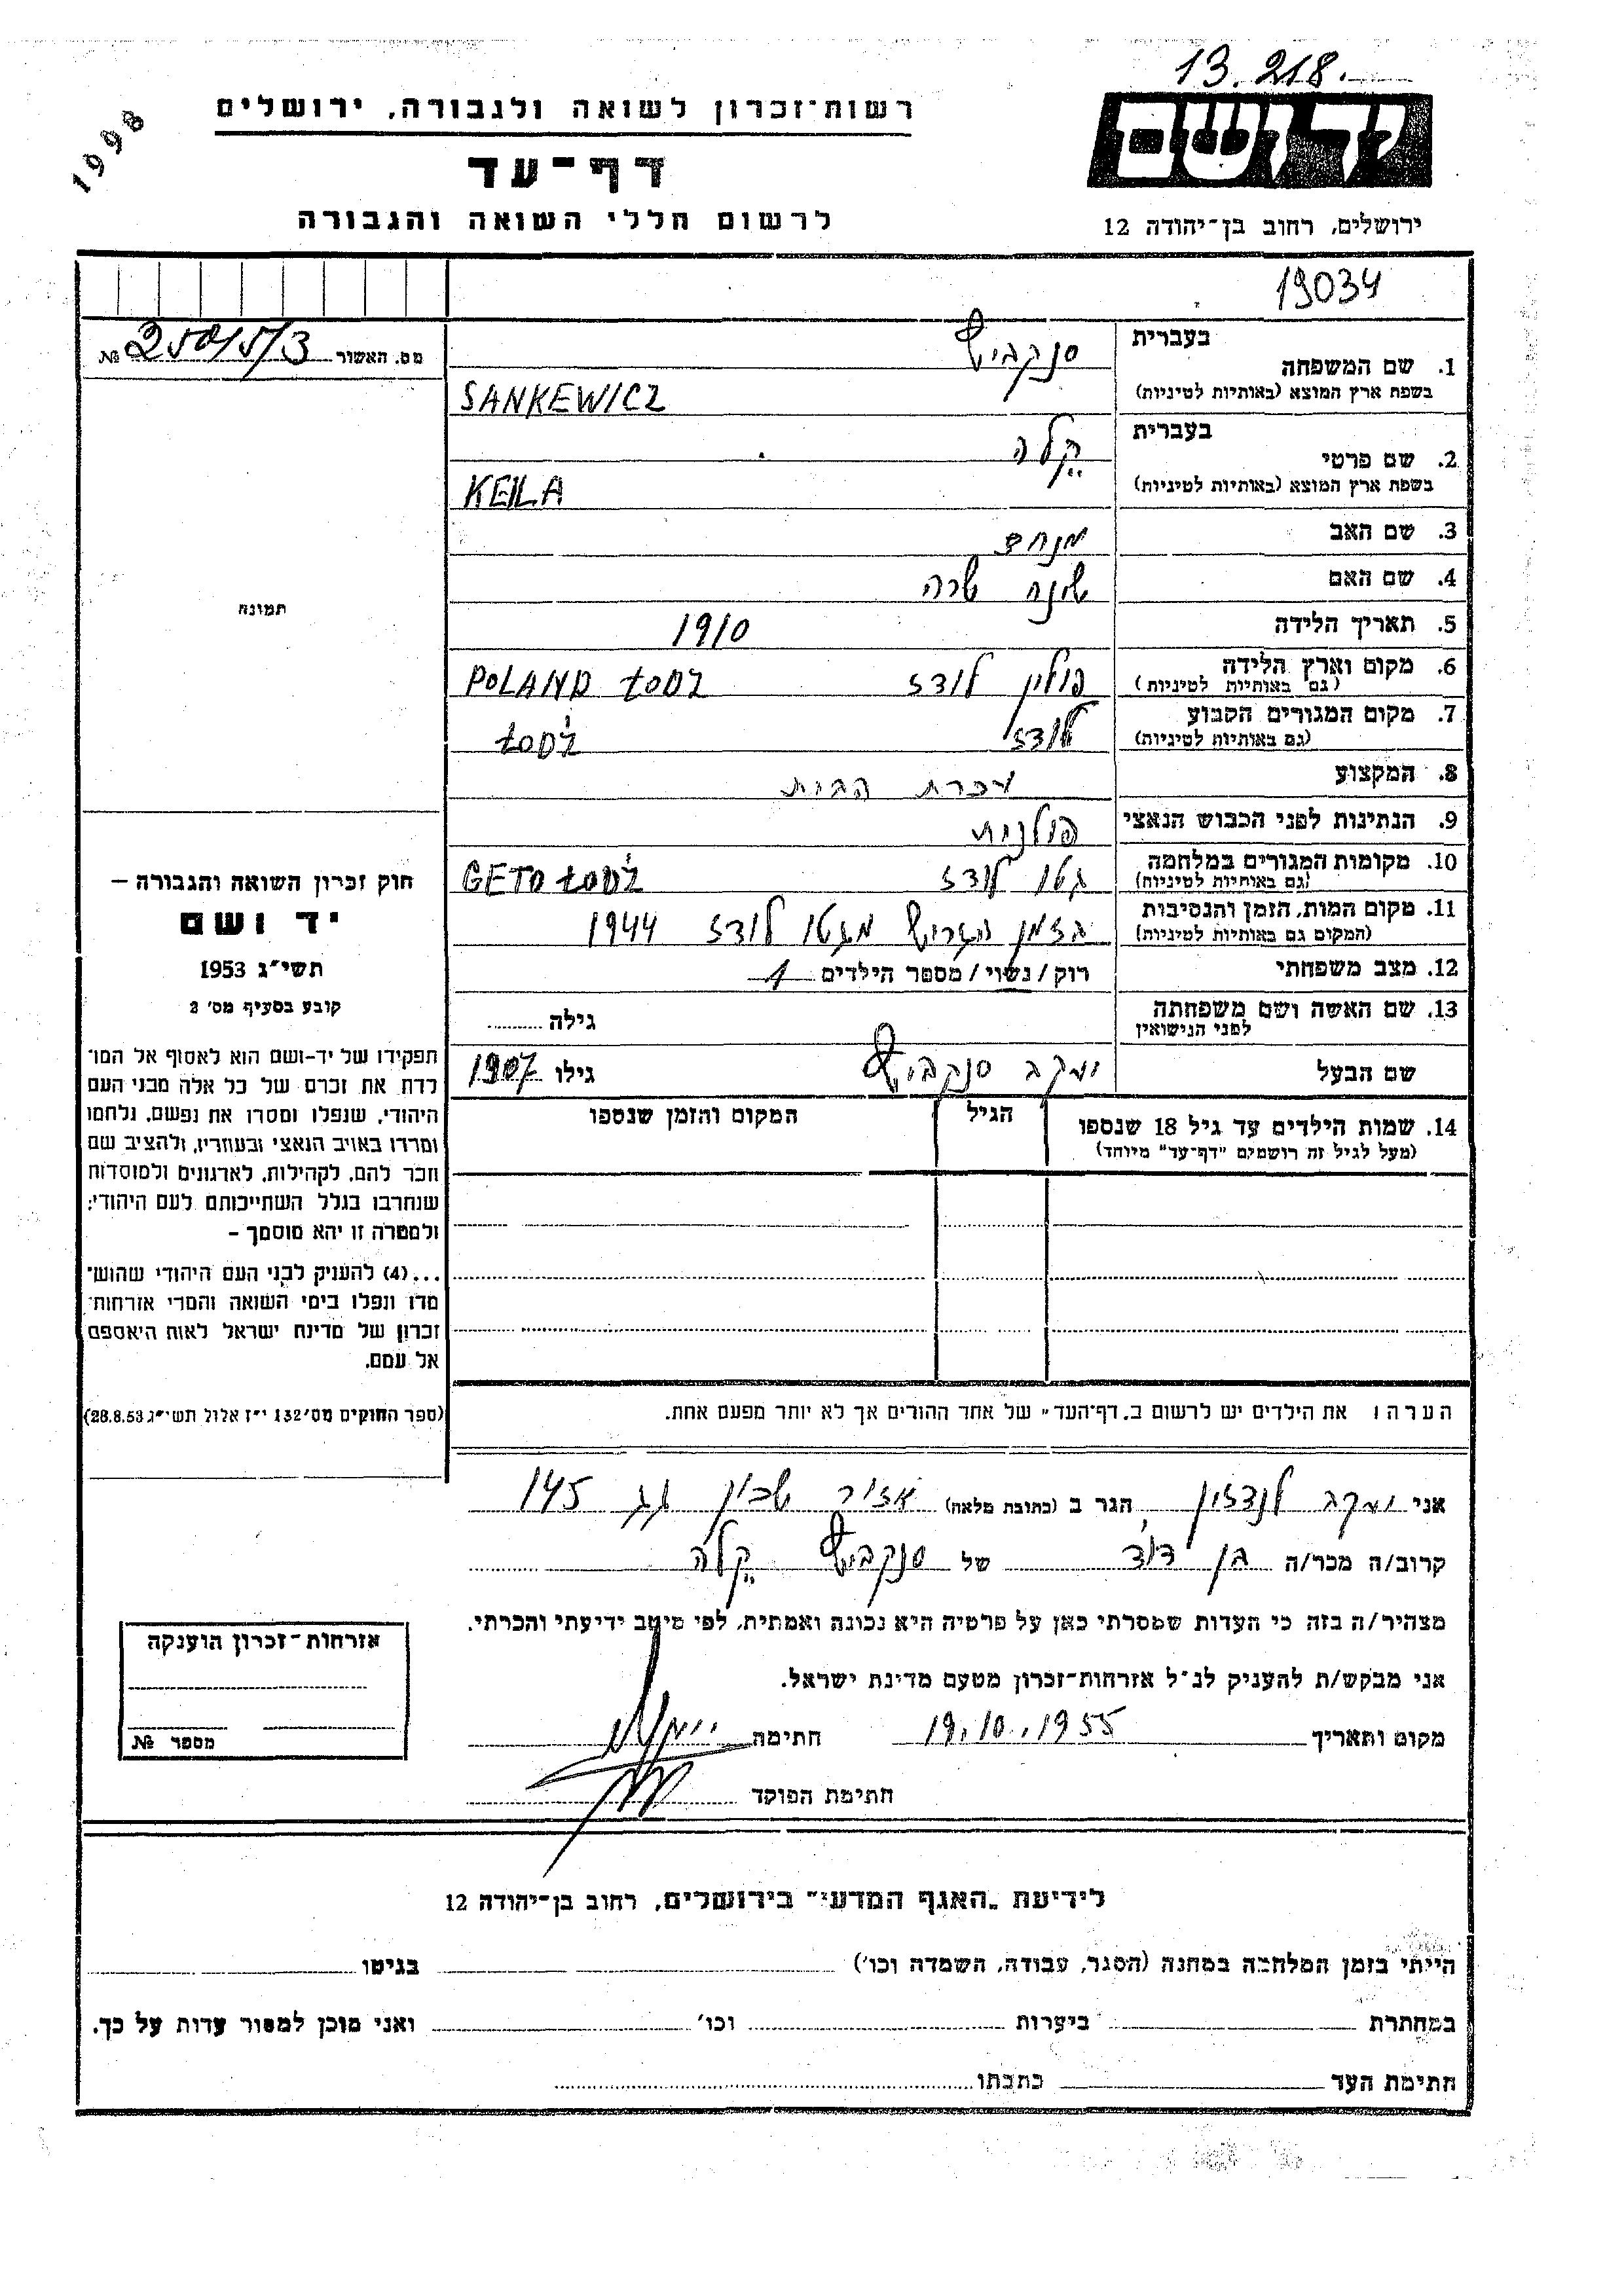 13.218.
1998
רשות־זכרון לשואה ולגבורה, ירושלים
יד ושם
דף־עד
לרשום חללי השואה והגבורה
ירושלים, רחוב בן־יהודה 12
19034
מס. האשור №
בעברית
1. שם המשפחה
סנקביץ
בשפת ארץ המוצא (באותיות לטיניות)
SANKEWICZ
בעברית
2. שם פרטי
קילה
בשפת ארץ המוצא (באותיות לטיניות)
KEILA
3. שם האב מנחם
4. שם האם שינה שרה
5. תאריך הלידה 1910
6. מקום וארץ הלידה פולין לודז POLAND ŁODŹ
(גם באותיות לטיניות)
7. מקום המגורים הקבוע לודז ŁODŹ
(גם באותיות לטיניות)
8. המקצוע עכרת הבית
9. הנתינות לפני הכבוש הנאצי פולנית
10. מקומות המגורים במלחמה גטו לודז GETO ŁODŹ
(גם באותיות לטיניות)
11. מקום המות, הזמן והנסיבות בזמן הגרוש מגטו לודז 1944
(המקום גם באותיות לטיניות)
12. מצב משפחתי רוק / נשוי / מספר הילדים 1
13. שם האשה ושם משפחתה גילה
לפני הנישואין
שם הבעל יעקב סנקביץ גילו 1907
14. שמות הילדים עד גיל 18 שנספו הגיל המקום והזמן שנספו
(מעל לגיל זה רושמים "דף־עד" מיוחד)
תמונה
חוק זכרון השואה והגבורה –
יד ושם
תשי״ג 1953
קובע בסעיף מס׳ 2
תפקידו של יד-ושם הוא לאסוף אל המו־
לדת את זכרם של כל אלה מבני העם
היהודי, שנפלו ומסרו את נפשם, נלחמו
ומרדו באויב הנאצי ובעוזריו, ולהציב שם
וזכר להם, לקהילות, לארגונים ולמוסדות
שנחרבו בגלל השתייכותם לעם היהודי;
ולמטרה זו יהא מוסמך –
...(4) להעניק לבני העם היהודי שהוש־
מדו ונפלו בימי השואה והמרי אזרחות־
זכרון של מדינת ישראל לאות היאספם
אל עמם.
(ספר החוקים מס׳ 132 י״ז אלול תשי״ג 28.8.53)
הערה : את הילדים יש לרשום ב„דף־העד" של אחד ההורים אך לא יותר מפעם אחת.
אני יעקב לנדזון הגר ב (כתובת מלאה) אזור שכון גג 145
קרוב/ה מכר/ה בן דוד של סנקביץ קילה
מצהיר/ה בזה כי העדות שמסרתי כאן על פרטיה היא נכונה ואמתית, לפי מיטב ידיעתי והכרתי.
אני מבקש/ת להעניק לנ״ל אזרחות־זכרון מטעם מדינת ישראל.
מקום ותאריך 19.10.1955 חתימה
חתימת הפוקד
אזרחות־זכרון הוענקה
מספר №
לידיעת „האגף המדעי" בירושלים, רחוב בן־יהודה 12
הייתי בזמן המלחמה במחנה (הסגר, עבודה, השמדה וכו׳) בגיטו
במחתרת ביערות וכו׳ ואני מוכן למסור עדות על כך.
חתימת העד כתבתו